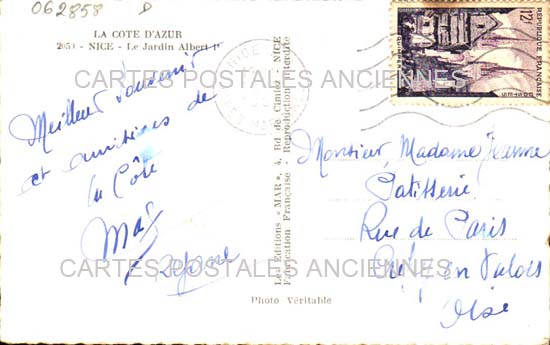 062858
LA COTE D'AZUR
2059 - NICE - Le Jardin Albert 1er
Meilleur souvenir
et amitiés de
la Côte
CARTES POSTALES ANCIENNES
CARTES POSTALES ANCIENNES
Photo Véritable
Les Editions « MAR », 4, Bd de Cimiez - NICE
Fabrication Française - Reproduction Interdite
NICE
12F
REPUBLIQUE FRANÇAISE
QUIMPER
POSTES
Monsieur, Madame Jeanne
Patisserie
Rue de Paris
en Valois
Oise